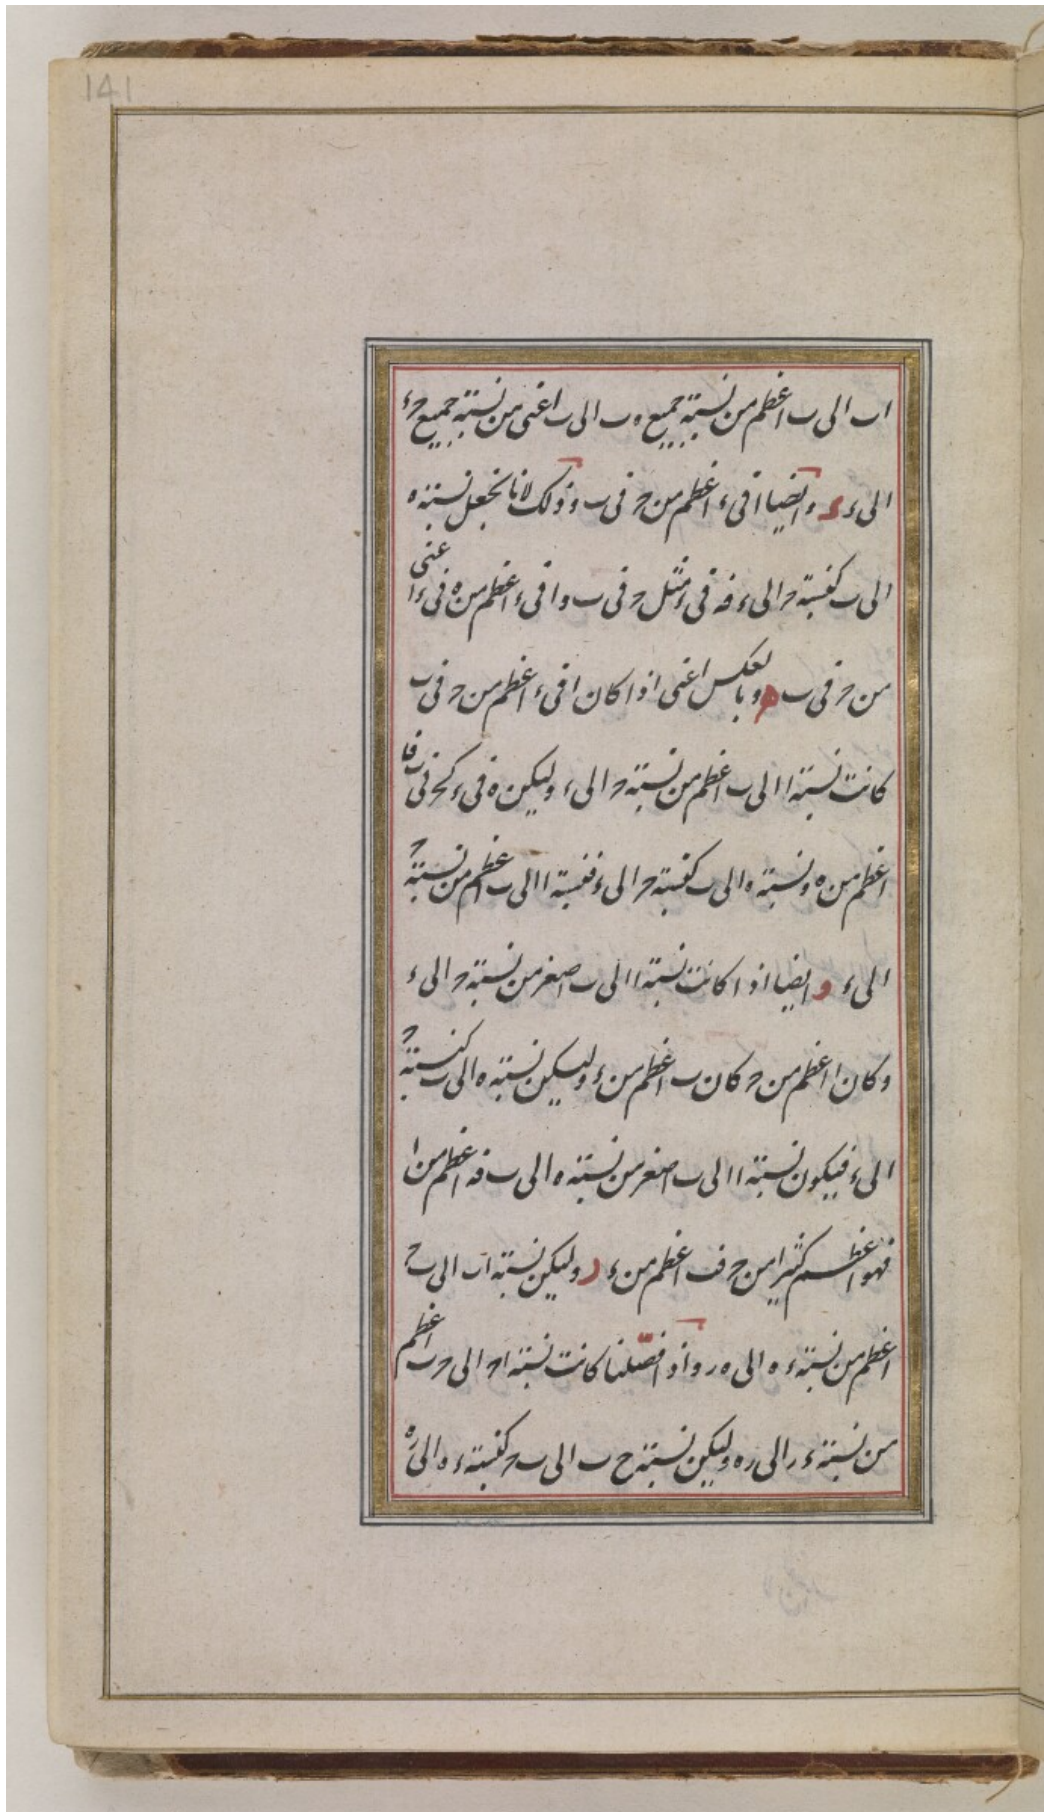 141
اب الى ب اعظم من نسبة جميع ه ب الى ب اعنى من نسبة جميع حء
الى ء ء وايضا ا فى ء اعظم من ح فى ب وذلك لانا نجعل نسبة ه
الى ب كنسبة ح الى ء فه فى ء مثل ح فى ب و ا فى ء اعظم من ه فى ء اعنى
من ح فى ب ه وبالعكس اعنى اذا كان ا فى ء اعظم من ح فى ب
كانت نسبة ا الى ب اعظم من نسبة ح الى ء وليكن ه فى ء كح فى ب فا
اعظم من ه ونسبة ه الى ب كنسبة ح الى ء فنسبة ا الى ب اعظم من نسبة ح
الى ء و ايضا اذا كانت نسبة ا الى ب اصغر من نسبة ح الى ء
وكان ا اعظم من ح كان ب اعظم من ء وليكن نسبة ه الى ب كنسبة ح
الى ء فيكون نسبة ا الى ب اصغر من نسبة ه الى ب فه اعظم من ا
فهو اعظم كثيرا من ح فب اعظم من ء ر وليكن نسبة اب الى ب ح
اعظم من نسبة ء ه الى ه ر واذا فصلنا كانت نسبة اح الى ح ب اعظم
من نسبة ء ر الى ر ه وليكن نسبة ح ب الى ب ح كنسبة ء ه الى ر ه